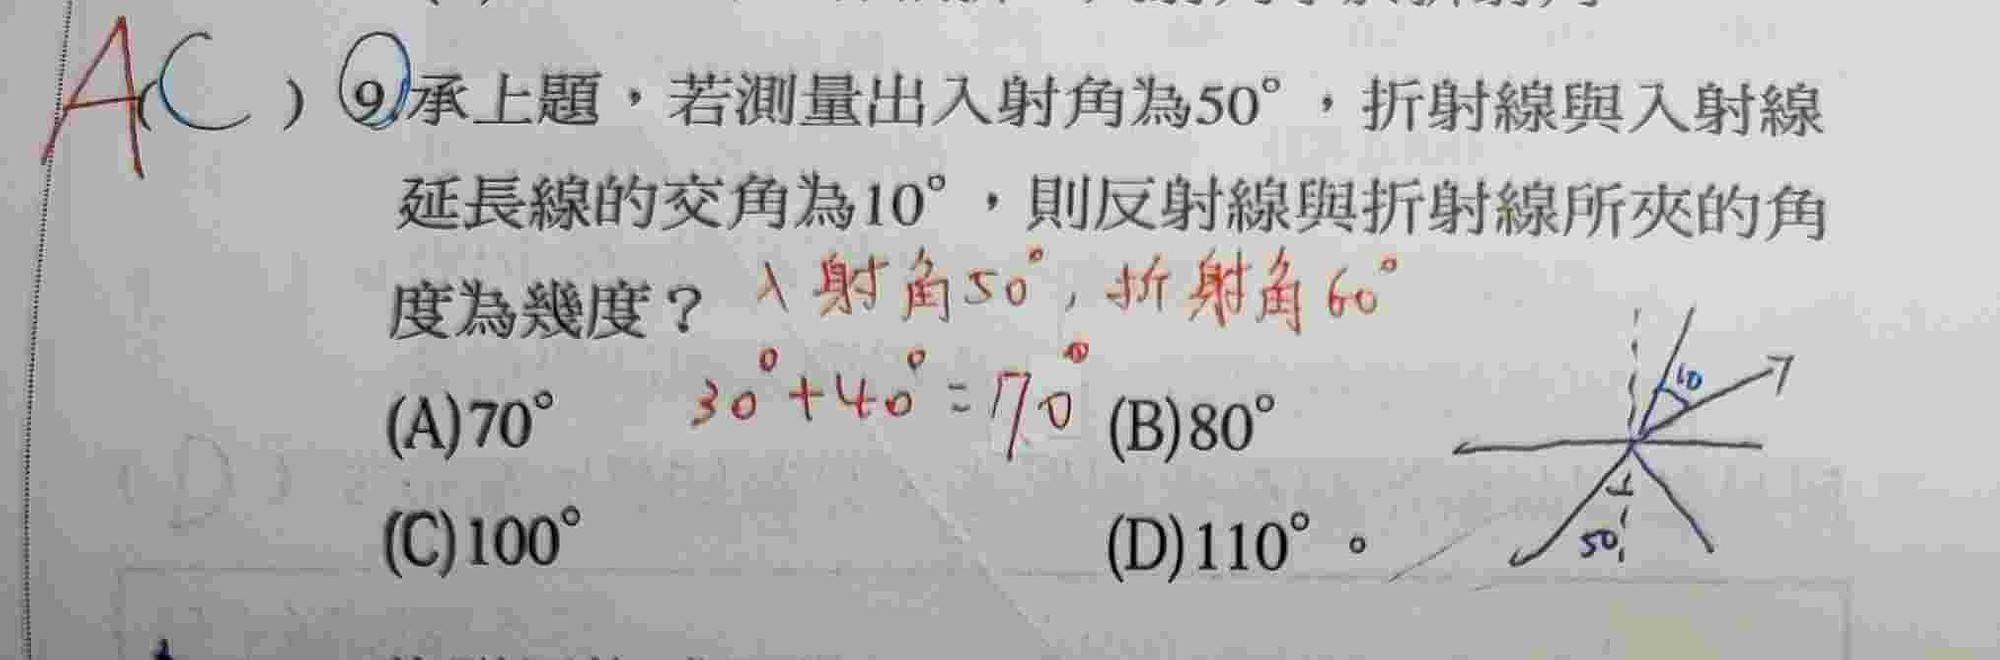 A(C ) 9 承上題，若測量出入射角為50°，折射線與入射線
延長線的交角為10°，則反射線與折射線所夾的角
度為幾度？ 入射角50°，折射角60°
(A)70° 30°+40°=70° (B)80°
10
(C)100° (D)110°。
50